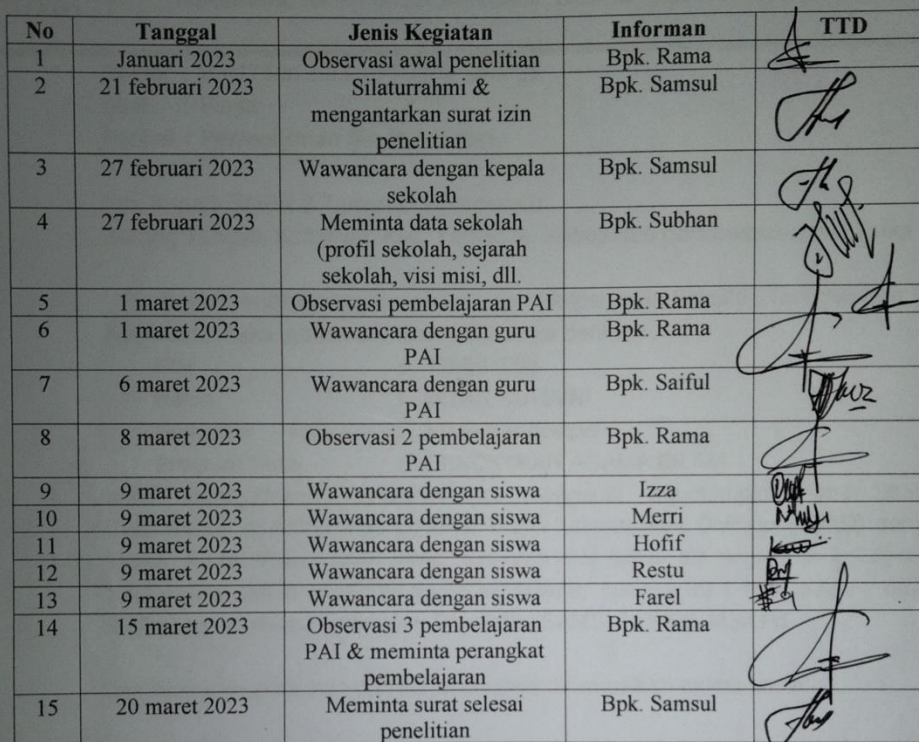 No Tanggal Jenis Kegiatan Informan TTD
1 Januari 2023 Observasi awal penelitian Bpk. Rama
2 21 februari 2023 Silaturrahmi & Bpk. Samsul
mengantarkan surat izin
penelitian
3 27 februari 2023 Wawancara dengan kepala Bpk. Samsul
sekolah
4 27 februari 2023 Meminta data sekolah Bpk. Subhan
(profil sekolah, sejarah
sekolah, visi misi, dll.
5 1 maret 2023 Observasi pembelajaran PAI Bpk. Rama
6 1 maret 2023 Wawancara dengan guru Bpk. Rama
PAI
7 6 maret 2023 Wawancara dengan guru Bpk. Saiful
PAI
8 8 maret 2023 Observasi 2 pembelajaran Bpk. Rama
PAI
9 9 maret 2023 Wawancara dengan siswa Izza
10 9 maret 2023 Wawancara dengan siswa Merri
11 9 maret 2023 Wawancara dengan siswa Hofif
12 9 maret 2023 Wawancara dengan siswa Restu
13 9 maret 2023 Wawancara dengan siswa Farel
14 15 maret 2023 Observasi 3 pembelajaran Bpk. Rama
PAI & meminta perangkat
pembelajaran
15 20 maret 2023 Meminta surat selesai Bpk. Samsul
penelitian